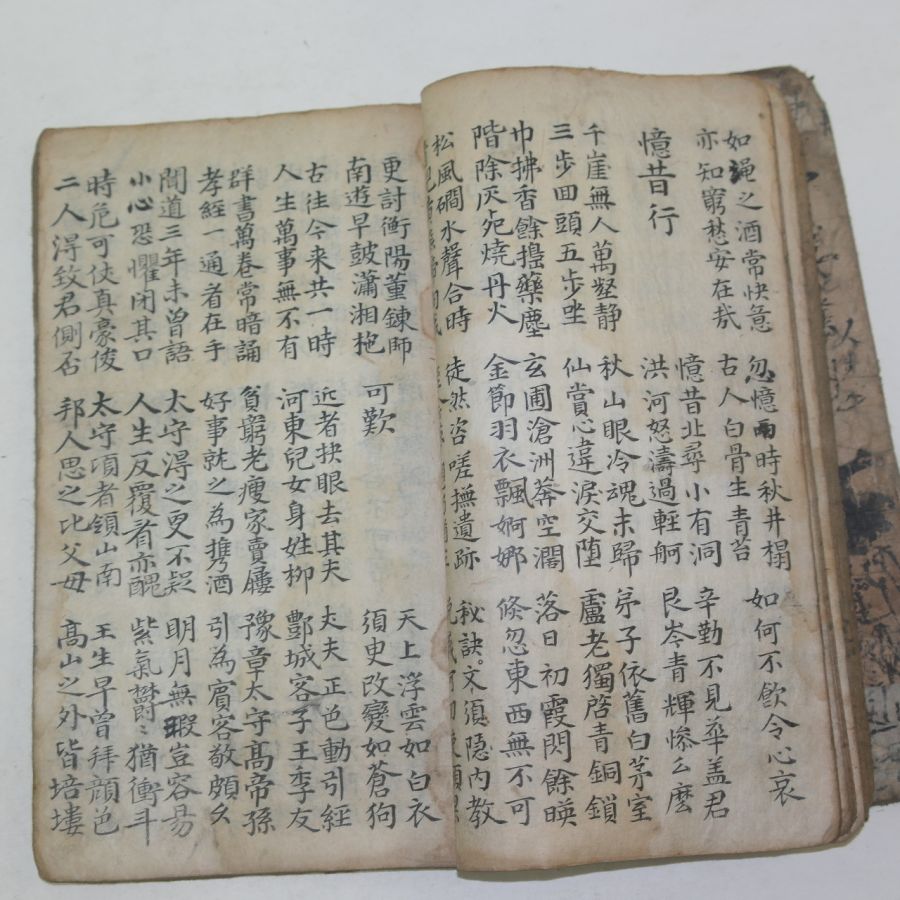 如澠之酒常快意
亦知窮愁安在㢤
忽憶雨時秋井榻
古人白骨生青苔
如何不飲令心哀
憶昔行
憶昔北尋小有洞
洪河怒濤過輕舸
辛勤不見華盖君
艮岑青輝慘么麽
千崖無人萬壑静
三步回頭五步坐
秋山眼冷魂未歸
仙賞心違淚交堕
弟子依舊白茅室
盧老獨啓青銅鎖
巾拂香餘搗藥塵
階除灰死燒丹火
玄圃滄洲莽空濶
金節羽衣飄婀娜
落日初霞閃餘暎
倏忽東西無不可
松風磵水聲合時
徒然咨嗟撫遺跡
秘訣。文須隐內教
更討衡陽董鍊師
南遊早皷瀟湘柂
可歎
天上浮雲如白衣
須臾改變如蒼狗
古往今来共一時
人生萬事無不有
近者抉眼去其夫
河東兒女身姓柳
丈夫正色動引經
酆城客子王季友
群書萬卷常暗誦
孝經一通者在手
貧窮老瘦家賣屩
好事就之為携酒
豫章太守髙帝孫
引為賓客敬頗久
聞道三年未曽語
小心恐懼閉其口
太守得之更不疑
人生反覆看亦醜
明月無瑕豈容易
紫氣欝〻猶衝斗
時危可仗真豪俊
二人得致君側否
太守頃者領山南
邦人思之比父母
王生早曾拜顔色
髙山之外皆培塿